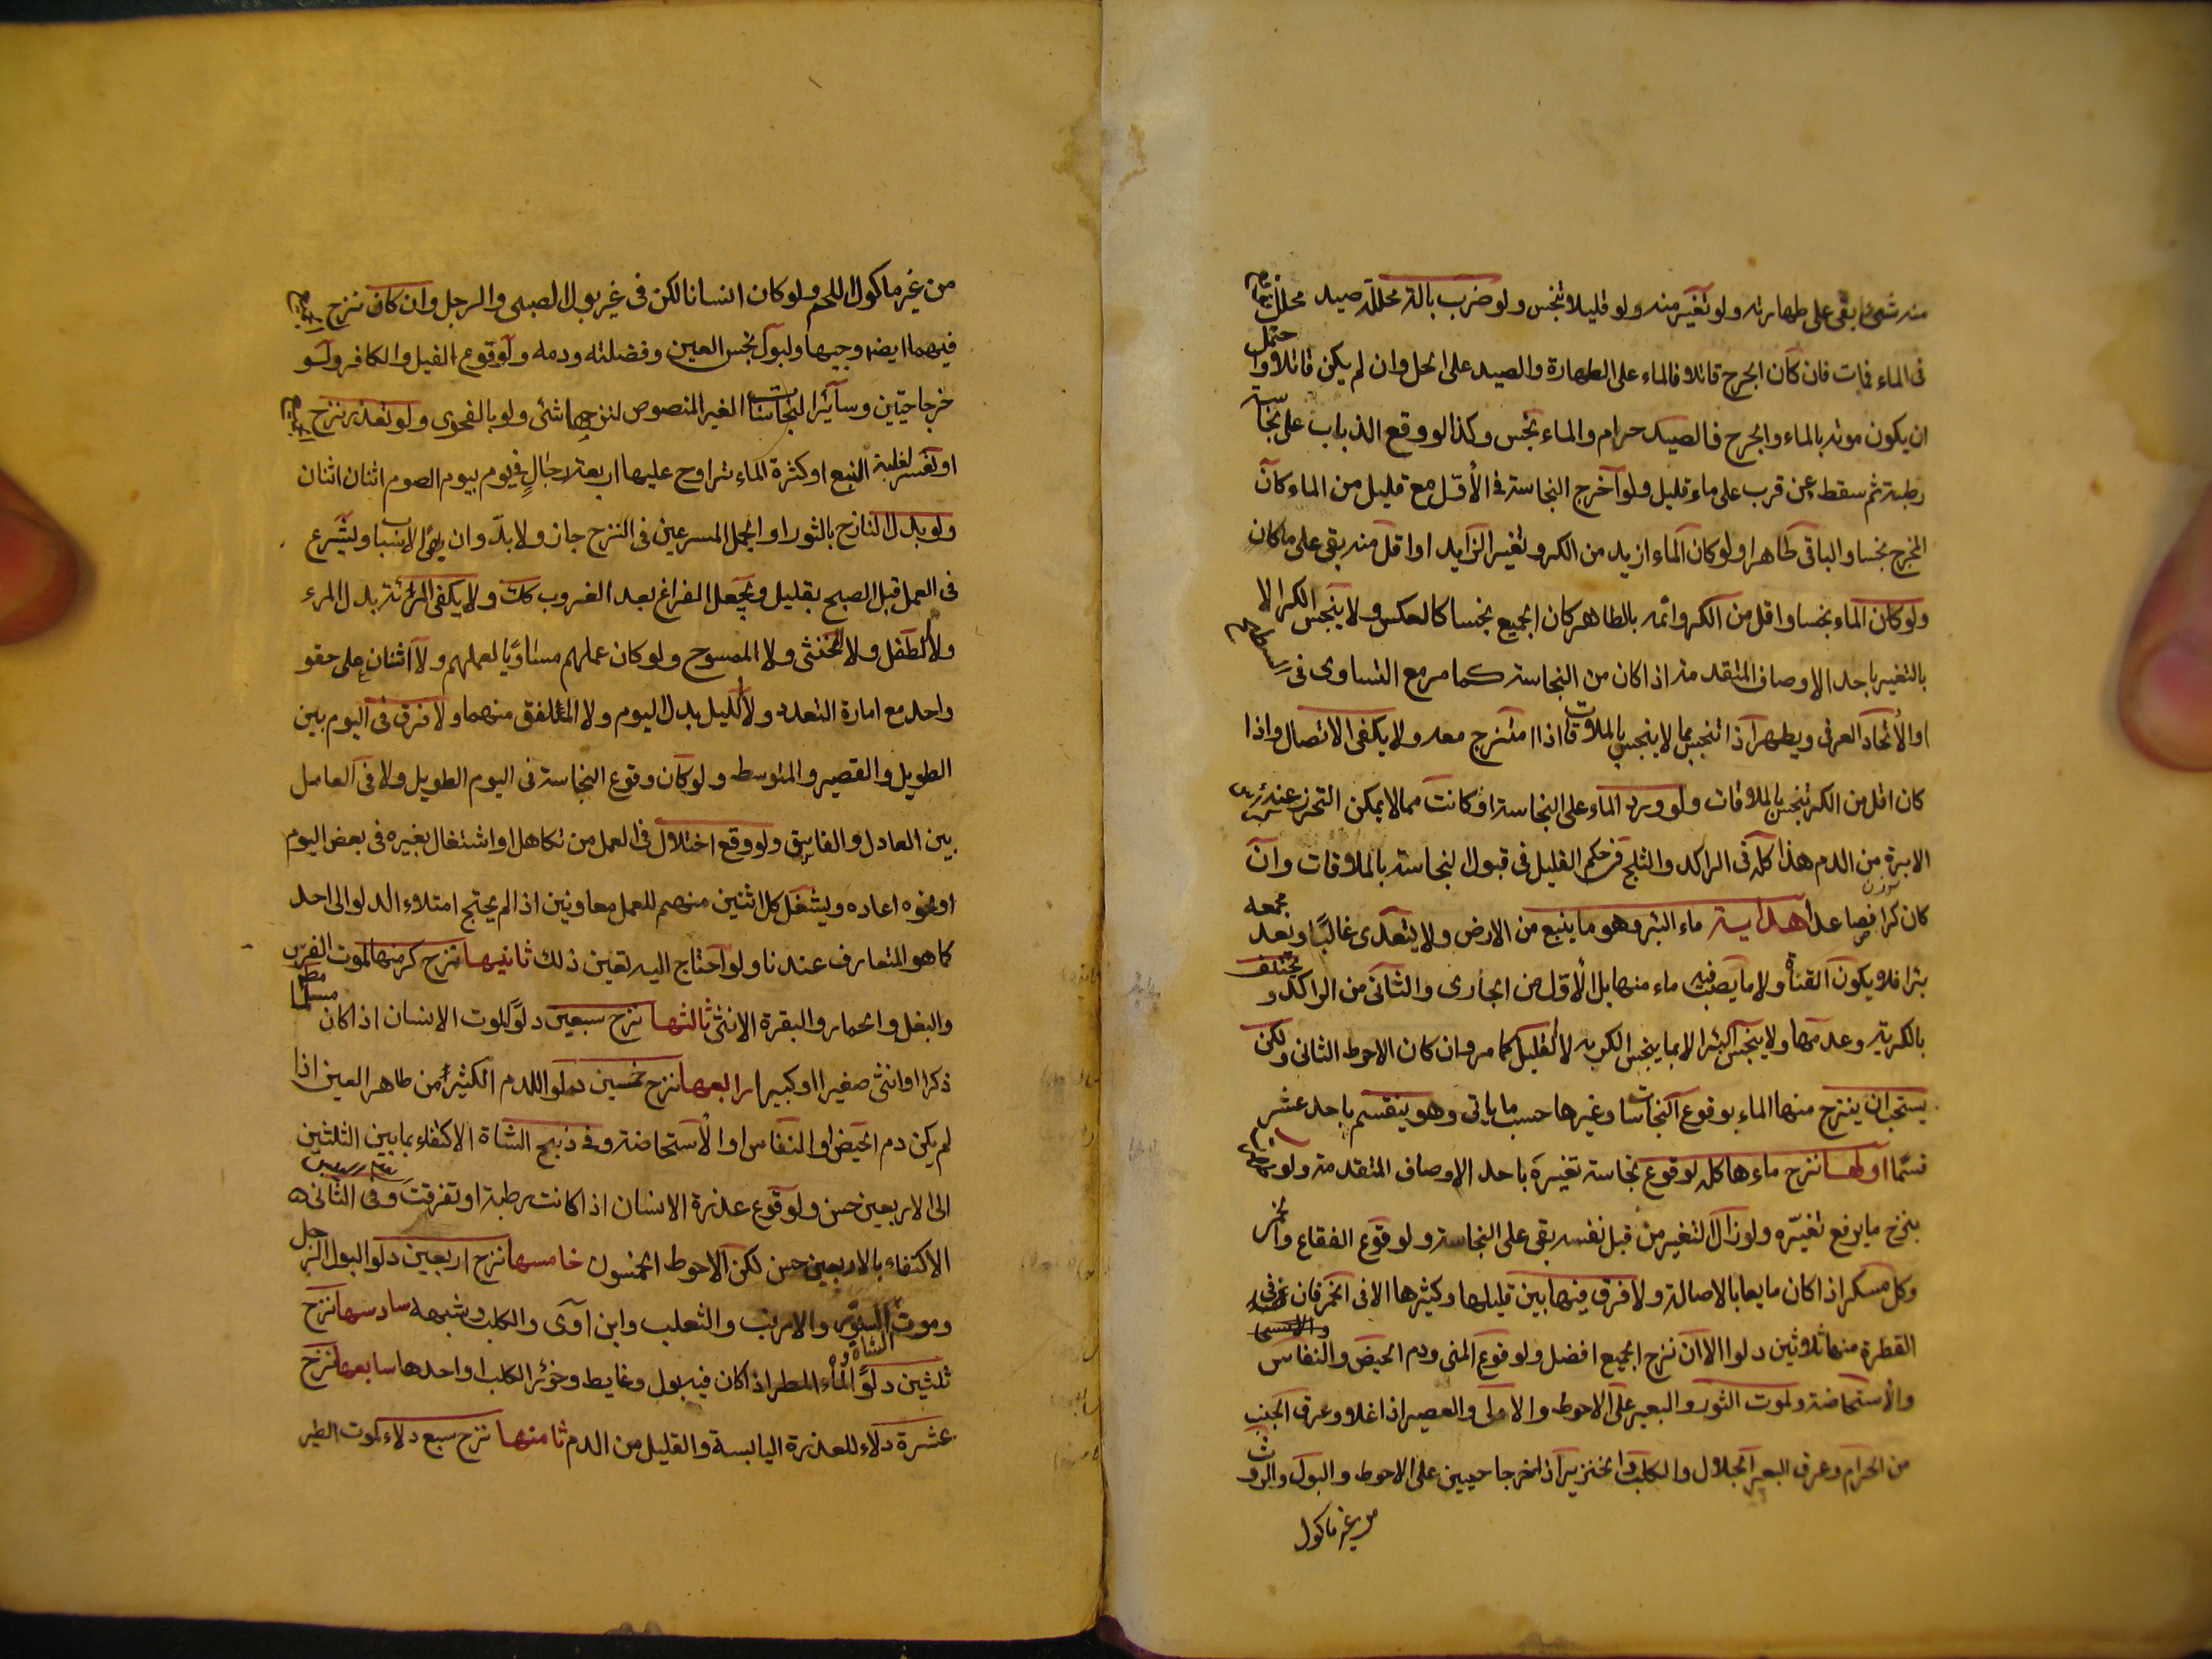 منه شئ بقى على طهارته ولو تغير منه ولو قليلا تنجس ولو ضرب بالة محللة صيد محلل
فى الماء فمات فان كان الجرح قاتلا فالماء على الطهارة والصيد على الحل وان لم يكن قاتلا واحتمل
ان يكون موته بالماء والجرح فالصيد حرام والماء نجس وكذا لو وقع الذباب على نجاسة
رطبة ثم سقط عن قرب على ماء قليل ولو آخرج النجاسة فى الأقل مع قليل من الماء كان
المخرج نجسا والباقى طاهرا ولو كان الماء ازيد من الكر وتغير الزايد او اقل منه بقى على ما كان
ولو كان الماء نجسا واقل من الكر واتمه بالطاهر كان الجميع نجسا كالعكس ولا ينجس الكر الا
بالتغير باحد الاوصاف المتقدمة اذا كان من النجاسة كما مر مع التساوى فى
او الاتحاد العرفى ويطهر آذا تنجس بما لا ينجس بالملاقات اذا امتزج معه ولا يكفى الاتصال واذا
كان اقل من الكر تنجس بالملاقات ولو ورد الماء على النجاسة او كانت مما لا يمكن التحرز عنه
الابرة من الدم هذا كله فى الراكد والثلج فى حكم القليل فى قبول النجاسة بالملاقات وان
كان كرا فصاعدا هداية ماء البئر وهو ما ينبع من الارض ولا يتعدى غالبا وبعد
بئرا فلا يكون القناة ولا ما يصب فيه ماء منها بل الأول من الجارى والثانى من الراكد ويختلف
بالكرية وعدمها ولا ينجس البئر الا بما ينجس الكر به لا القليل كما مر وان كان الاحوط الثانى ولكن
يستحب ان ينزح منها الماء بوقوع النجاسات وغيرها حسب ما ياتى وهو ينقسم باحد عشر
قسما اولها نزح ماءها كله لوقوع نجاسة تغيره باحد الاوصاف المتقدمة ولو
ينزح ما يرفع تغيره ولو زال التغير من قبل نفسه بقى على النجاسة ولوقوع الفقاع والخمر
وكل مسكر اذا كان مايعا بالاصالة ولا فرق فيها بين قليلها وكثيرها الا فى الخمر فان فى
القطرة منها ثلاثين دلوا الا ان نزح الجميع افضل ولوقوع المنى ودم الحيض والنفاس
والاستحاضة ولموت الثور والبعير على الاحوط والاولى والعصير اذا غلا وعرق الجنب
من الحرام وعرق البعير الجلال والكلب والخنزير آذا خرجا حيين على الاحوط والبول والروث
من غير ماكول
من غير ماكول اللحم ولو كان انسانا لكن فى غير بول الصبى والرجل وان كان نزح
فيهما ايضا وجيها ولبول نجس العين وفضلته ودمه ولوقوع الفيل والكافر ولو
خرجا حيين وسائر النجاسات الغير المنصوص لنزحها شئى ولو بالفحوى ولو تعذر نزح
او تعسر لغلبة النبع او كثرة الماء تراوح عليها اربعة رجال فى يوم بيوم الصوم اثنان اثنان
ولو بدل النازح بالثور او الجمل المسرعين فى النزح جاز ولا بد وان يهيئ الاسباب ويشرع
فى العمل قبل الصبح بقليل ويجعل الفراغ بعد الغروب كك ولا يكفى المرئة بدل المرء
ولا الطفل ولا الخنثى ولا الممسوح ولو كان عملهم مساويا لعملهم ولا اثنان على حقو
واحد مع امارة التعدد ولا الليل بدل اليوم ولا الملفق منهما ولا فرق فى اليوم بين
الطويل والقصير والمتوسط ولو كان وقوع النجاسة فى اليوم الطويل ولا فى العامل
بين العادل والفاسق ولو وقع اختلال فى العمل من تكاهل او اشتغال بغيره فى بعض اليوم
او نحوه اعاده ويشغل كل اثنين منهم للعمل معاونين اذا لم يحتج امتلاء الدلو الى احد
كما هو المتعارف عندنا ولو آحتاج اليه تعين ذلك ثانيها نزح كر منها لموت الفرس
والبغل والحمار والبقرة الانثى ثالثها نزح سبعين دلوا لموت الانسان اذا كان مسلما
ذكرا او انثى صغيرا او كبيرا رابعها نزح خمسين دلوا للدم الكثير من طاهر العين اذا
لم يكن دم الحيض او النفاس او الاستحاضة وفى ذبح الشاة الاكتفاء بما بين الثلثين
الى الاربعين حسن ولوقوع عذرة الانسان اذا كانت رطبة او تفرقت وفى الثانى
الاكتفاء بالاربعين حسن لكن الاحوط الخمسون خامسها نزح اربعين دلوا لبول الرجل
وموت السنور والارنب والثعلب وابن آوى والكلب وشبهه سادسها نزح
ثلثين دلوا لماء المطر اذا كان فيه بول وغايط وخرؤ الكلب او احدها سابعها نزح
عشرة دلاء للعذرة اليابسة والقليل من الدم ثامنها نزح سبع دلاء لموت الطير